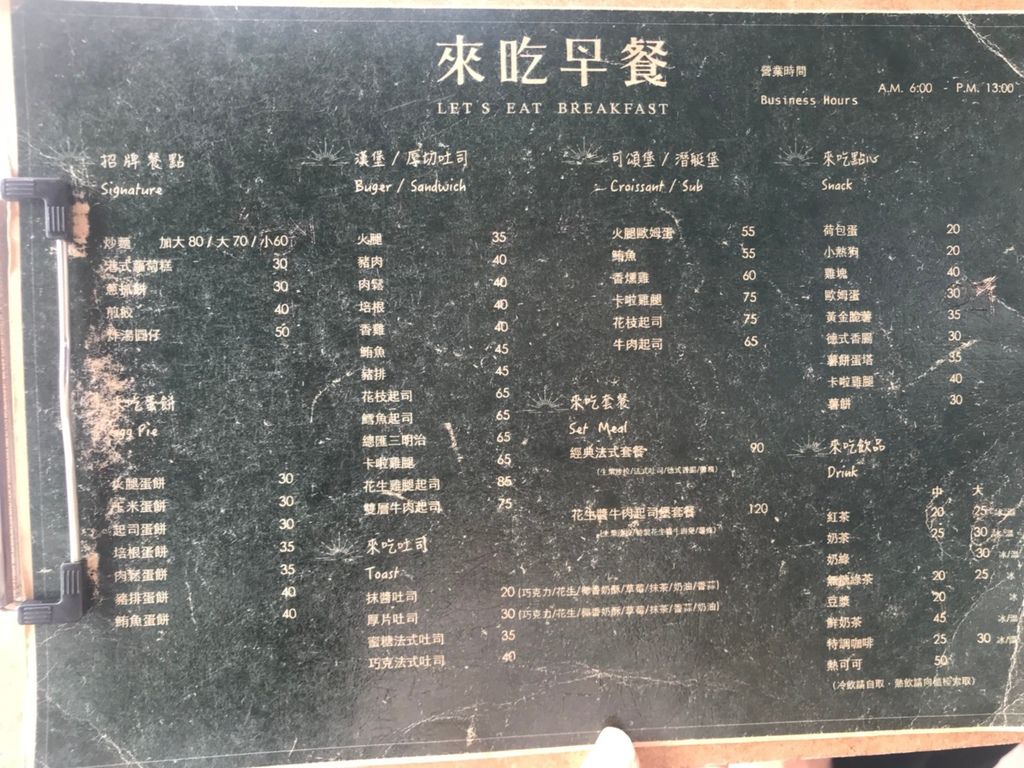 來吃早餐
LET'S EAT BREAKFAST
營業時間
Business Hours
A.M. 6:00 - P.M. 13:00
招牌餐點
Signature
炒麵 加大80/大70/小60
港式蘿蔔糕 30
蔥抓餅 30
煎餃 40
炸湯圓仔 50
吃蛋餅
Egg Pie
火腿蛋餅 30
玉米蛋餅 30
起司蛋餅 30
培根蛋餅 35
肉鬆蛋餅 35
豬排蛋餅 40
鮪魚蛋餅 40
漢堡 / 厚切吐司
Buger / Sandwich
火腿 35
豬肉 40
肉鬆 40
培根 40
香雞 40
鮪魚 45
豬排 45
花枝起司 65
鱈魚起司 65
總匯三明治 65
卡啦雞腿 65
花生雞腿起司 85
雙層牛肉起司 75
來吃吐司
Toast
抹醬吐司 20 (巧克力/花生/椰香奶酥/草莓/抹茶/奶油/香蒜)
厚片吐司 30 (巧克力/花生/椰香奶酥/草莓/抹茶/香蒜/奶油)
蜜糖法式吐司 35
巧克法式吐司 40
可頌堡 / 潛艇堡
Croissant / Sub
火腿歐姆蛋 55
鮪魚 55
香燻雞 60
卡啦雞腿 75
花枝起司 75
牛肉起司 65
來吃套餐
Set Meal
經典法式套餐 90
花生醬牛肉起司堡套餐 120
來吃點心
Snack
荷包蛋 20
小熱狗 20
雞塊 40
歐姆蛋 30
黃金脆薯 35
德式香腸 30
薯餅蛋塔 35
卡啦雞腿 40
薯餅 30
來吃飲品
Drink
中 大
紅茶 20 25 冰/溫
奶茶 25 30 冰/溫
奶綠 30 冰/溫
無糖綠茶 20 25 冰
豆漿 20 冰
鮮奶茶 45 冰/溫
特調咖啡 25 30 冰/溫
熱可可 50
(冷飲請自取，熱飲請向櫃檯索取)